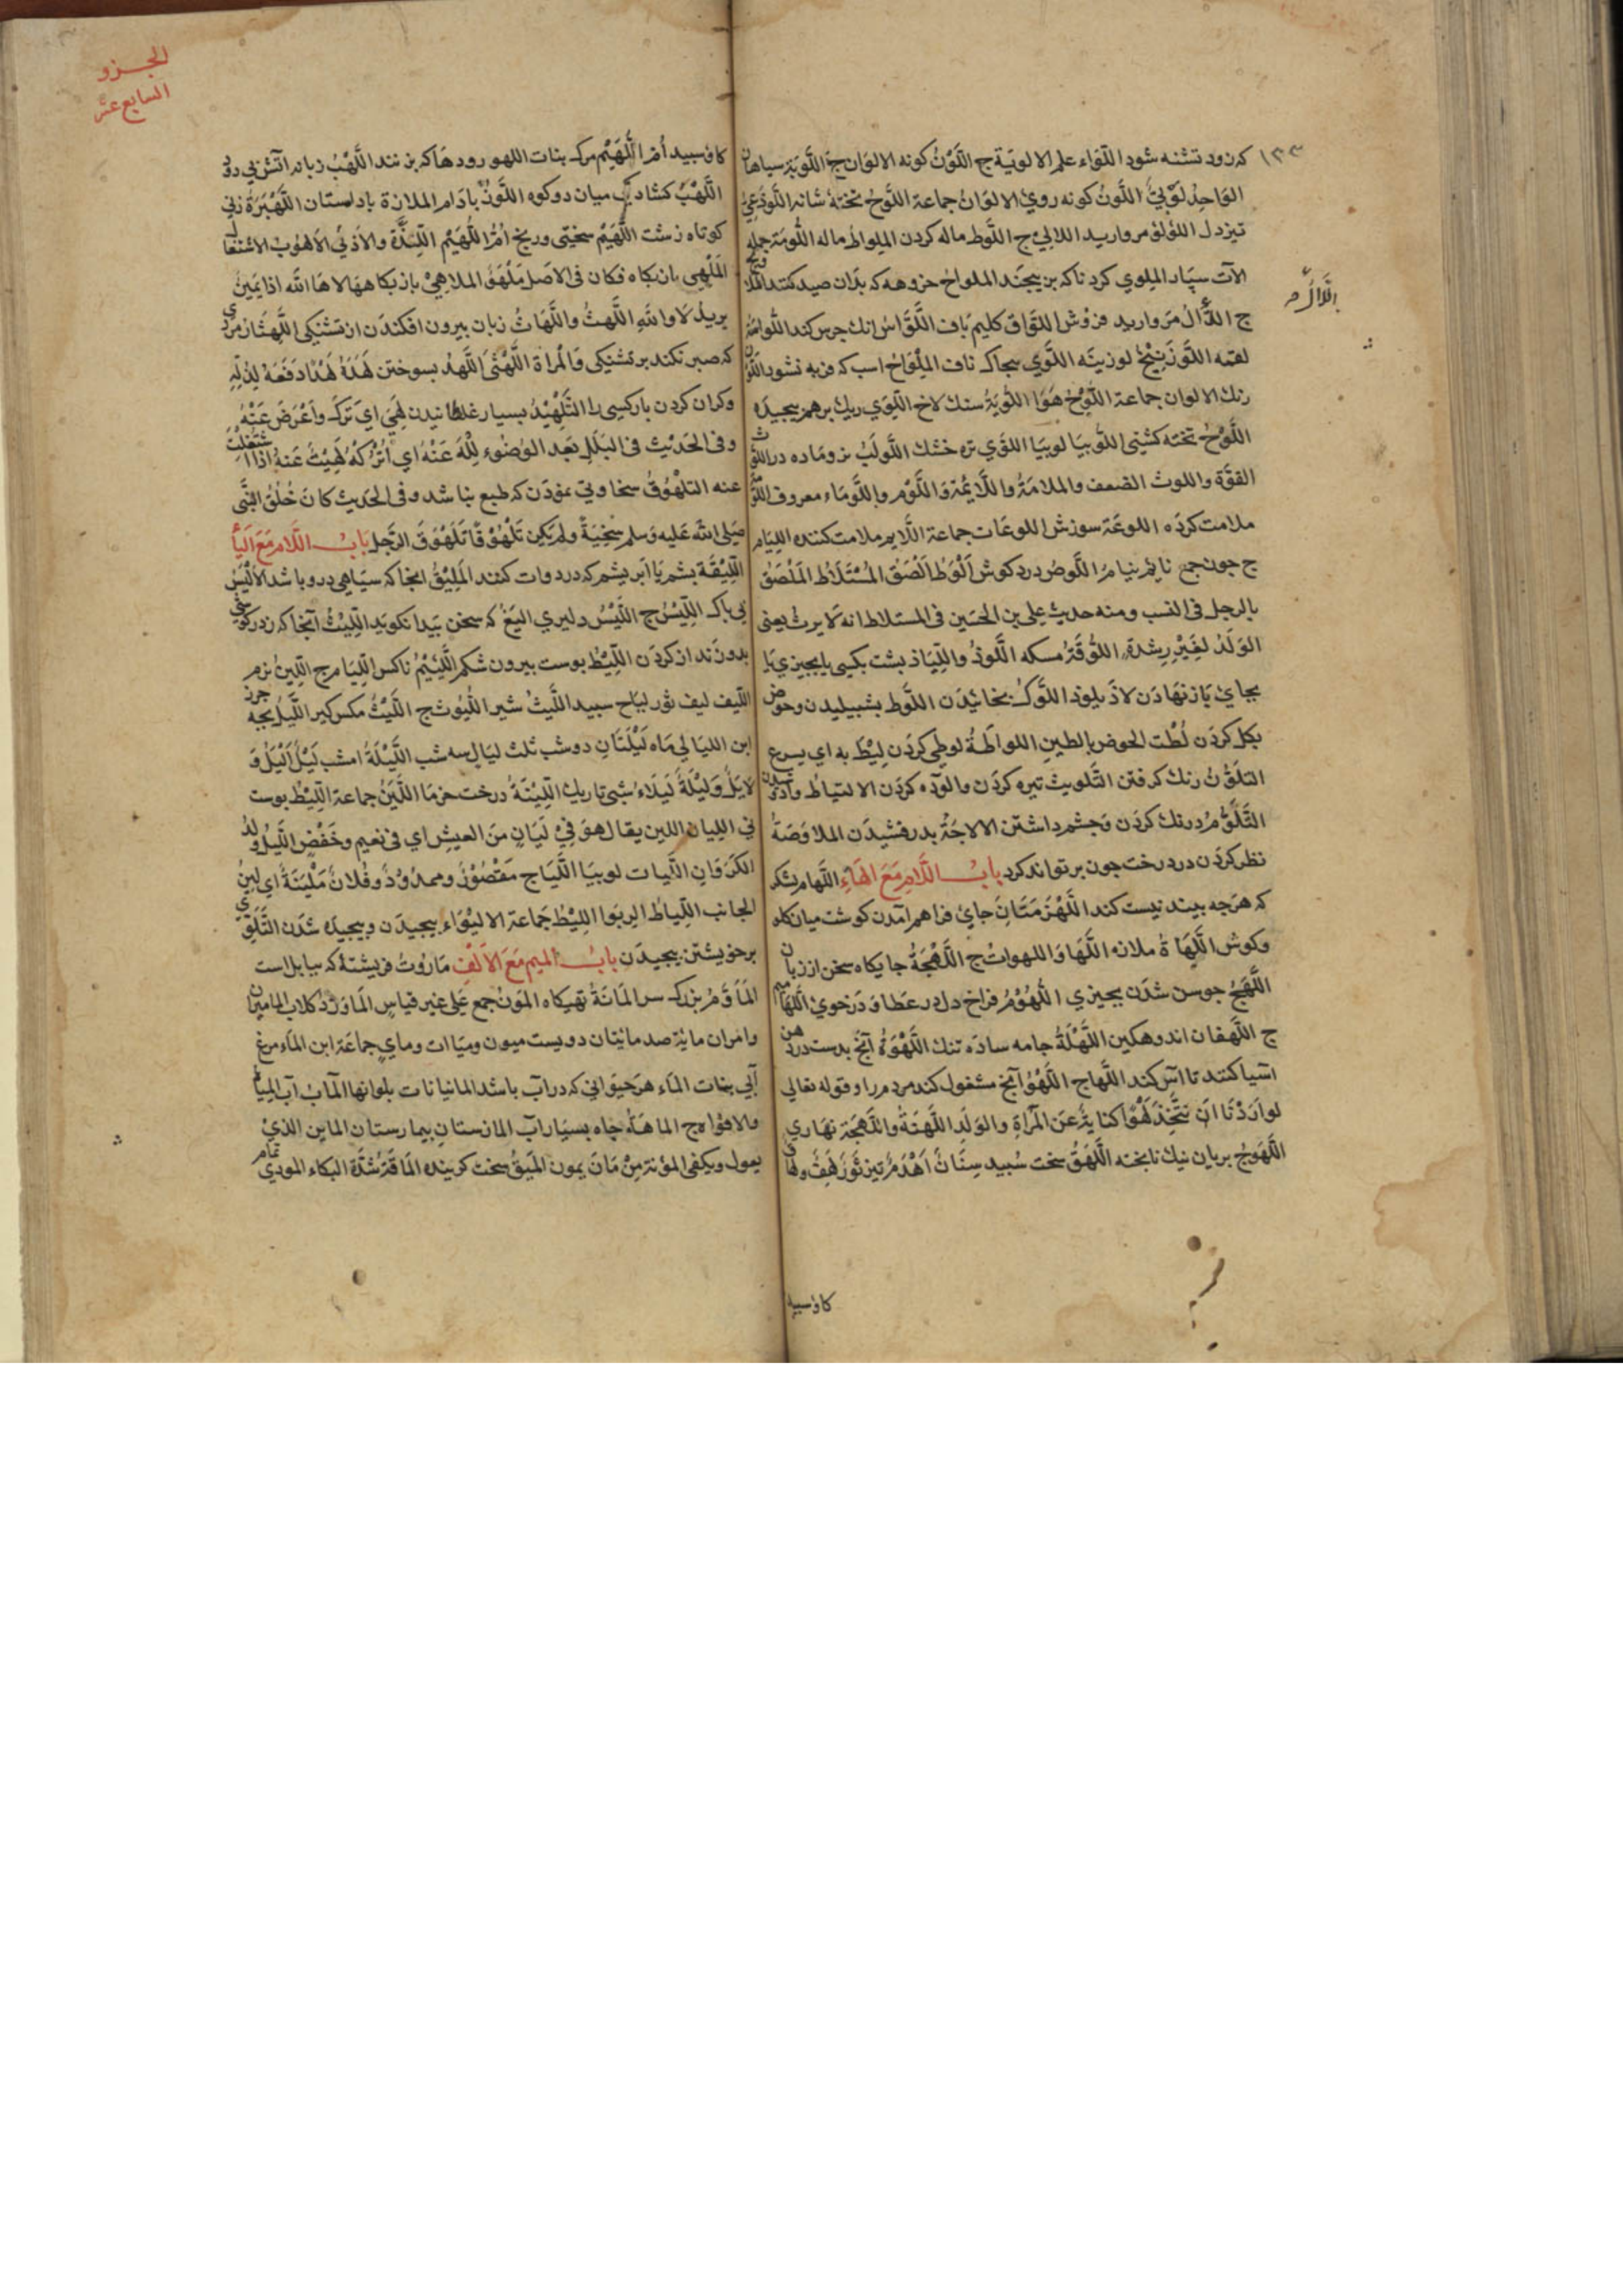 ١٣٣
كه زود تشنه شود اللّوَاء علم الالوية ج اللَّوْنُ كونه الالوان ج اللُّوبَة سياهان
الوَاحِدُ لُوْبِيٌّ اللَّونُ كونه روي الالوَانُ جماعة اللَّوحُ تختهٔ شانه اللَّوذَعِيُّ
تيزدل اللؤلؤ مرواريد اللالي ج اللَّوط ماله كردن الملواط ماله اللُّومَة جمله
الآت سپاد الملوي كرد ناكه بر پيچند الملواح خروهه كه بدان صيد كنند
ج اللَّأّالُ مرواريد فروش اللوَّاق كليم باف اللَّوَّاسُ انك جرس كند اللُّواسَة
لقمه اللَّوزَنِيْجُ لوزينه اللَّوي سجاك ناف المِلْوَاحُ اسب كه فربه نشود
رنك الالوان جماعة اللُّوْحُ هَوَا اللُّوبَةُ سنك لاخ اللِّوَي ريك برهم پيچيده
اللَّوْحُ تخته كشتي اللُّوبيَا لوبيا اللَّوَي تره خشك اللَّولَبُ نر وماده در
القوَّة واللوث الضعف والملامَةُ واللَّائِمَة وَاللَّوْم واللَّومَاء معروف
ملامت كرده اللوعَة سوزش اللوعَات جماعة اللَّايم ملامت كننده الليَام
ج جون جمع نايم نيام اللَّوصُ درد كوش اَلْوَطُ اَلْصَقُ المُسْتَلَاطُ المُلْصَقُ
بالرجل في النسب ومنه حديث علي بن الحسَين في المستلاط انه لَا يرث يعني
الوَلَدُ لِغَيْرِ رِشْدَةٍ اللُّوقَةُ مسكه اللَّوذُ واللِّيَاذ پشت بكسي يا بچيزي يَا
بجاي باز نهادن لاذ يلوذ اللَّوكُ بخائيدن اللَّوط بشپيليدن وحوض
بكل كردن لُطْت الحوض بالطينِ اللواطَةُ لوطي كردن لِيْطَ به اي يسرع
التلوُّنُ رنك كرفتن التَّلويث تيره كردن والوده كردن الالتياط
التَّلَوُّمُ درنك كردن وچشم داشتن الالاحَةُ بدرفشيدن الملاوَصَةُ
نظر كردن در درخت جون بر تواند كرد بابُ اللَّامِ مَعَ الهَاءِ اللُّهام لشكر
كه هرجه بيند نيست كند اللِّهْزِمَتَانِ جاي فراهم آمدن كوشت ميان كله
وكوش اللَّهَاةُ ملازه اللَّهَا وَاللهواتُ ج اللَّهْجَةُ جايكاه سخن از زبان
اللَّهَجُ جوسن شدن بچيزي اللُّهُوْمُ فراخ دل در عطا وَدَر خوي
ج اللَّهفان اندوهكين اللَّهْلَةُ جامه ساده تنك اللُّهْوَةُ آنچ بدست در دهن
آسيا كنند تا آس كند اللُّها ج اللَّهْوُ آنچ مشغول كند مردم را وقوله تعالي
لواَرَدْنَا انْ نَتَّخِذَ لَهْوًا كناية عن المَرْأةِ والوَلَدِ اللُّهنَةُ واللُّهجَة نهاري
اللَّهوَجُ بريان نيك نا پخته اللَّهَقُ سخت سُبيد سِنَانٌ لَهْذَمٌ تيز ثَوْرٌ لَهِقٌ
كاو سبيد
الجزو
السابع عشر
كاو سبيد اُمُّ اللُّهَيْم مرك بنات اللهو رودها كه بزنند اللَّهْبُ زبانه آتش بي دود
اللَّهْبُ كشادكي ميان دو كوه اللَّوْزُ بادَام الملازة بادامستان اللَّهْبَرَةُ زني
كوتاه زشت اللُّهَيْمُ سختي ورنج اُمُّ اللُّهَيْم اللَّذَّة والاذي الالهُوبُ الاشتعال
المَلْهى بازيكاه فكان في الاصل مَلْهَوٌ الملاهيْ بازيكاهها لا هَا الله اذا يَمِيْنٌ
يريدُ لا والله اللَّهثُ واللُّهَاثُ زبان بيرون افكندن از تشنكي اللَّهثَانُ مردي
كه صبر نكند بر تشنكي وَالمراة اللَّهْثَى اللَّهدُ بسوختن لَهَدَهُ لَهْدًا دَفَعَهُ لِذُلِّهِ
وكران كردن بار كسي را التَّلْهِيْدُ بسيار غلطانيدن لَهِيَ اي تَرَكَ وَاَعْرَضَ عَنْهُ
وفي الحَدَيْث في البَلَلِ بعَد الوضُوءِ اِلْهَ عَنْهُ اي اُتْرُكْهُ لَهِيْتُ عَنهُ اذا اشتغلتَ
عنه التلَهْوُقُ سخاوتي نمودن كه طبع نباشد وفي الحديث كانَ خُلُقُ النَّبي
صَلى الله عَليه وَسلم سَجِيَّةً ولم يَكن تَلَهْوُقًا تَلَهْوَقَ الرَّجل بَابُ اللَّام مَعَ اليَأ
اللِّيْقَة پشم يَا ابريشم كه در دوات كنند المَلِيْقُ انجاكه سياهي در وباشد الاَلْيَسُ
بي باك اللِّيْسُ ج اللَّيَسُ دليري اليَغُ كه سخن پيدا نكويد اللِّيْتُ آنجاكه
بدون ندان كردن اللِّيْطُ پوست بيرون شكم اللَّئيْمُ ناكس اللِّيَام ج اللَّيِّنُ نرم
اللِّيف ليف ثور لِيَاح سبيد اللَّيثُ شير اللُّيُوث ج اللَّيْثُ مكس كير اللَّيلُ بچه جرز
ابن الليَالي مَاه لَيْلَتَانِ دوشب ثلث ليَال سه شب اللَّيْلَةُ امشب لَيْلٌ اَلْيَلُ وَ
لَايَلُ وَلَيْلَةٌ لَيلَاءُ شبي تاريك اللِّيْنَةُ درخت خرمَا اللِّيْنُ جماعة اللِّيْطُ پوست
ني الليان اللين يقال هوَ فِيْ لَيَانٍ مِنَ العيشِ اي في نعيم وخَفْضٍ اللَّيْلُ وَلَدُ
الكَرَوَانِ اللَّيَات لوبيَا اللِّيَاج مَقْصُوْرٌ وممدُوْدٌ وفُلانٌ مَلْيَنَةٌ اي لين
الجانب اللِّياطُ الربَوا اللِّيْطُ جَمَاعة الالتوَاء پيچيدن وپيچيده شدن التَّلَوِّي
برخويشتن پيچيدن بابُ الميم مَعَ الاَلفِ مَارُوتُ فريشتهٔ كه ببابل است
المَأْوَمُ بزرك سر المَانَةُ تهيكاه المَؤنُ جمع عَلى غير قياس المَاوَرْدُ كلاب
وامران مايَة صد مائتان دويست ميون وميَات وماي جماعَة ابن المَاء مرغ
آبي بنات المَاء هر حيوَاني كه در آب باشد المانيانات بلوانها المَآبُ آب
والافوَاه ج الماهَة چاه بسيَار آب المارستان بيمارستان الماين الذيْ
يعول ويكفي المؤنة مِنْ مَانَ يمون المئيقُ سخت كرينده المَاقَة شدَّةُ البكاء